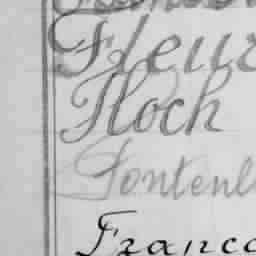 Fleur
Floch
Fontenl
Franco